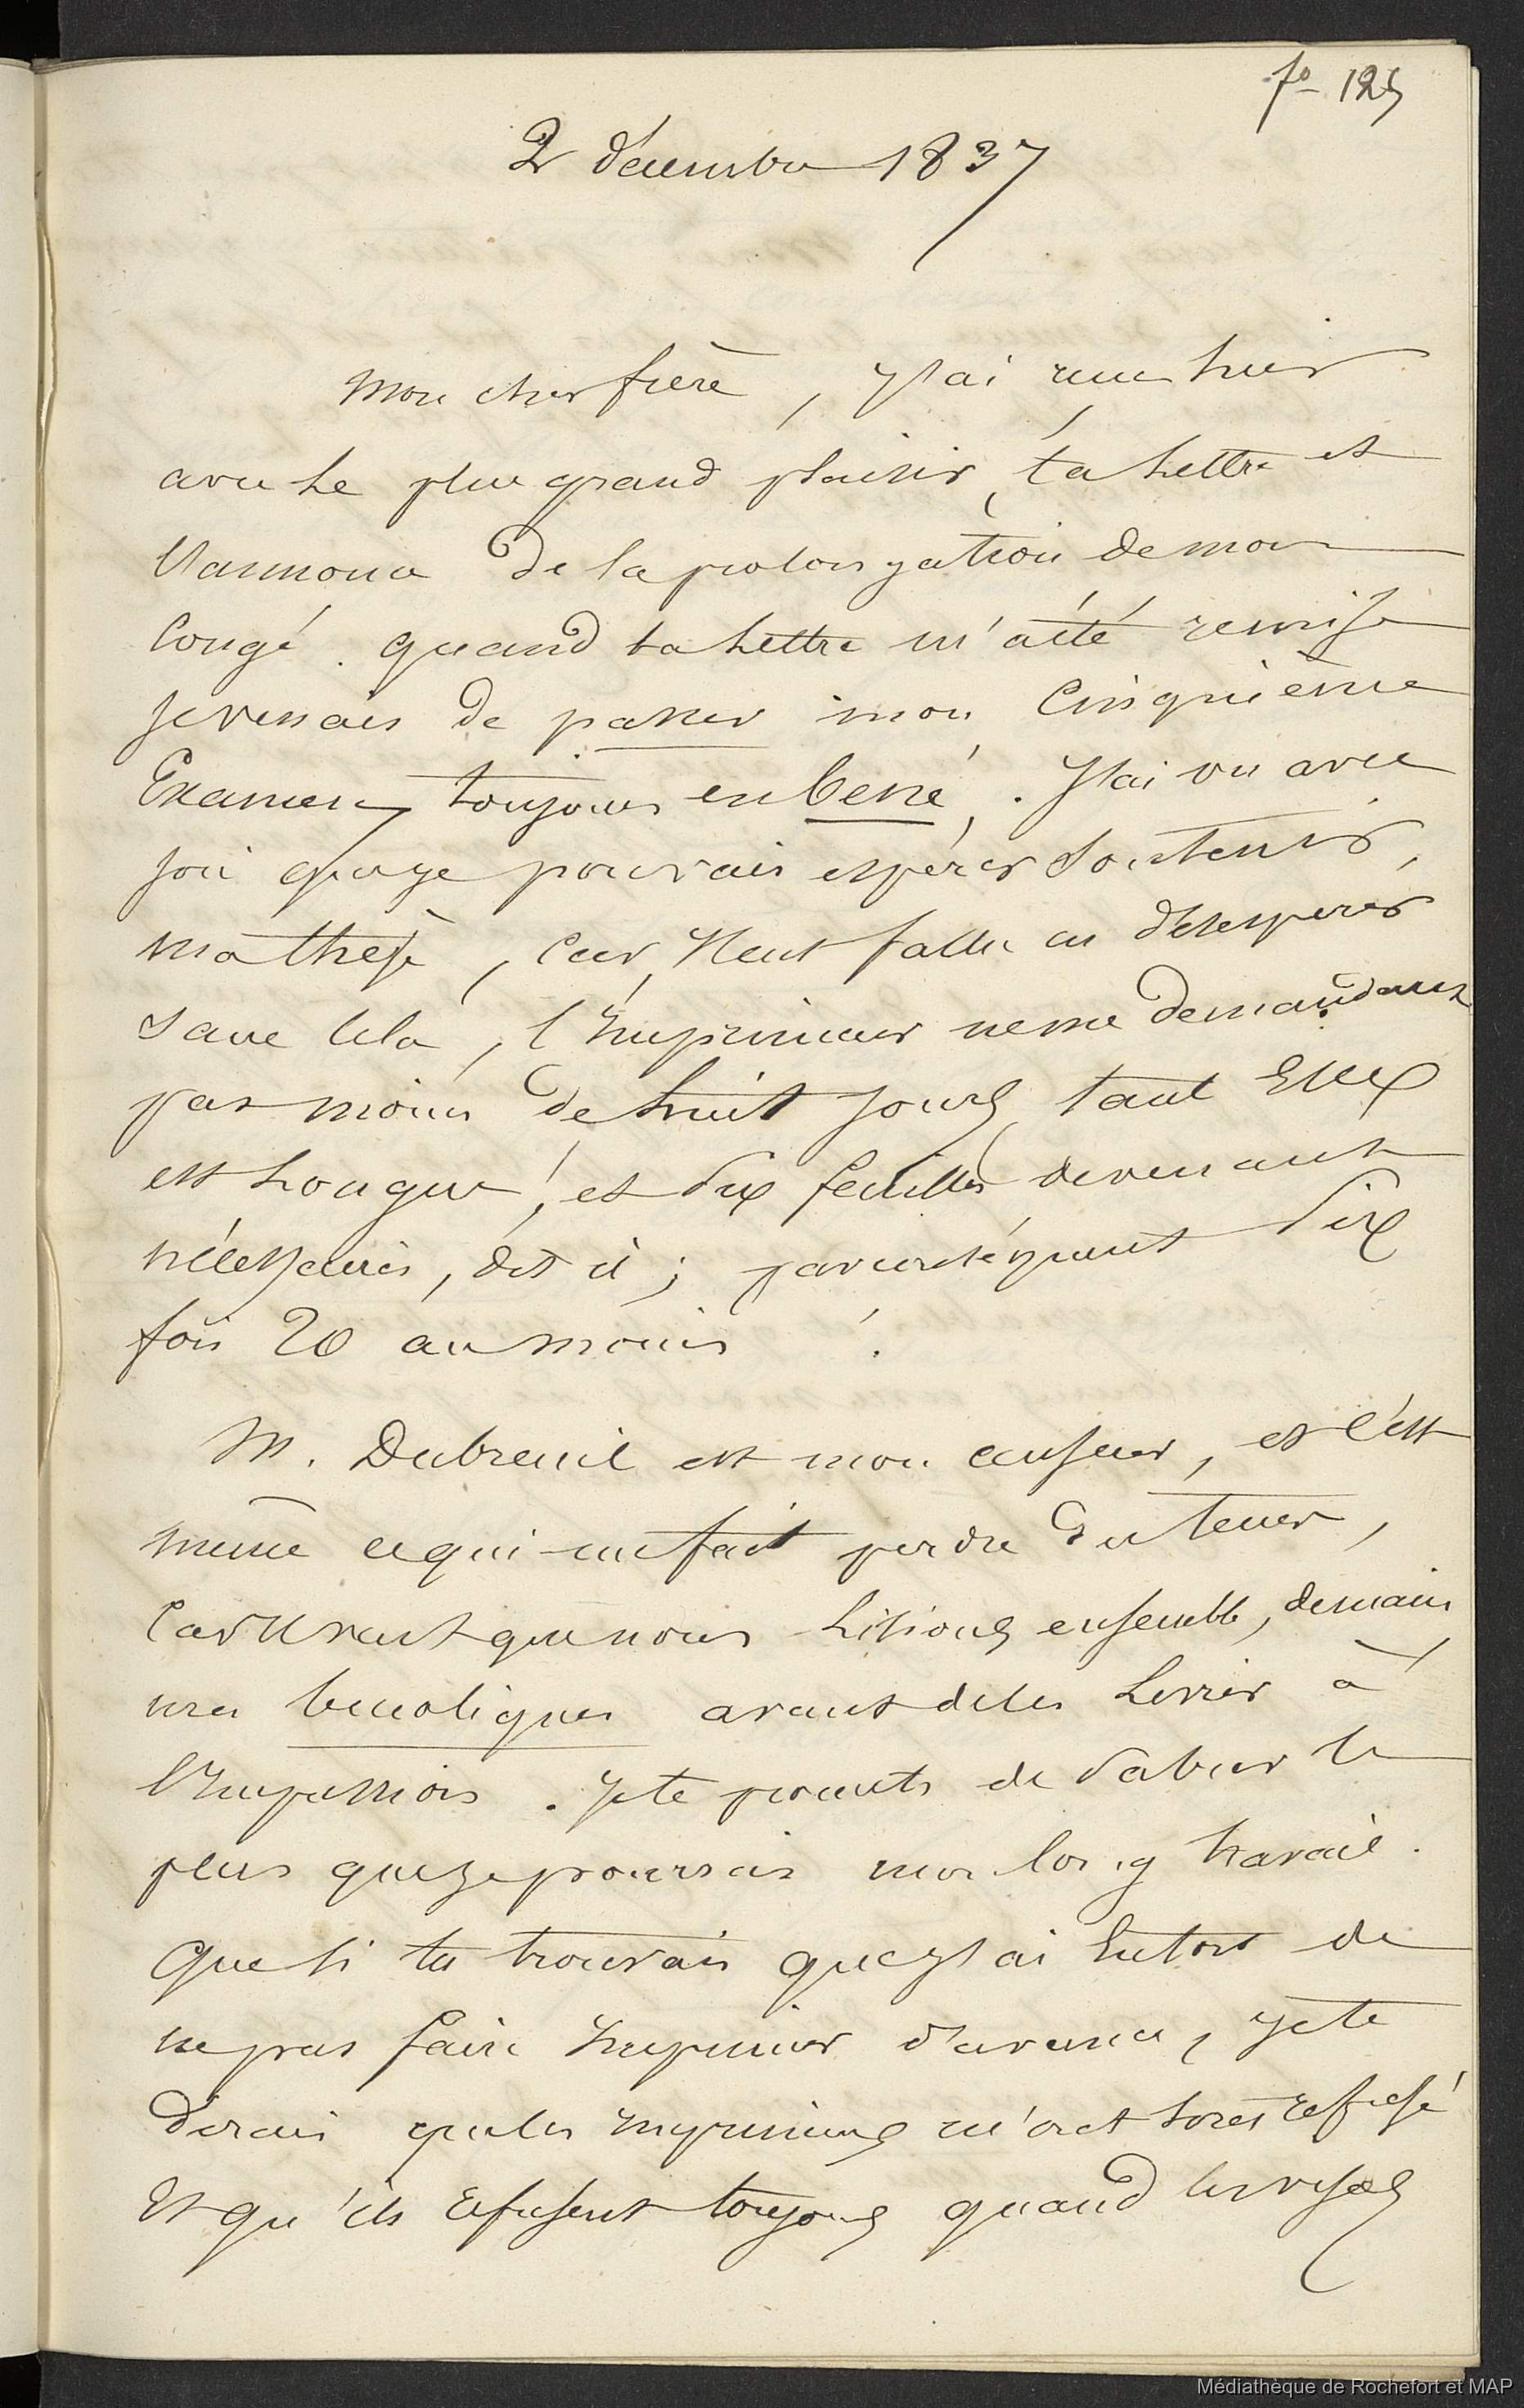 fo 125
2 décembre 1837
Mon cher frère, j'ai reçu hier
avec le plus grand plaisir, ta lettre et
l'annonce de la prolongation de mon
Congé. quand ta lettre m'a été remise
je venais de passer mon Cinquième
Examen, toujours en bene. J'ai vu avec
joie que je pouvais espérer soutenir,
ma thèse, car, il eut fallu en désespérer
sans cela, l'Imprimeur ne me demandant
pas moins de huit jours, tant Elle
est longue, et dix feuilles devenant
nécessaires, dit il; par conséquent dix
fois 20 au moins !
M. Dubreuil est mon censeur, et c'est
même ce qui me fait perdre du temps,
Car il veut que nous lisions ensemble, demain
mes bucoliques avant de les livrer à
l'Impression. Je te promets de sabrer le
plus que je pourrais mon long travail.
Que si tu trouvais que j'ai Eu tort de
ne pas faire Imprimer d'avance, je te
dirais que les Imprimeurs m'ont tous refusé
Et qu'ils refusent toujours quand les visas
Médiathèque de Rochefort et MAP